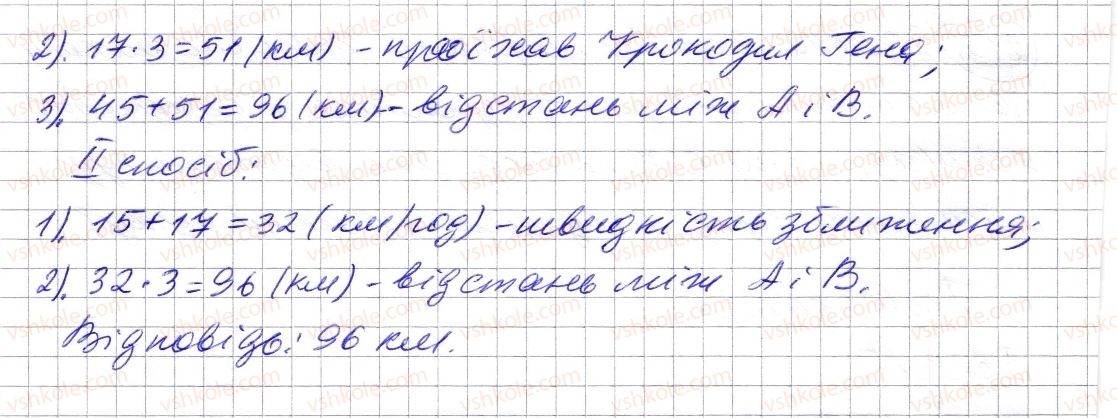 2). 17·3=51 (км) - проїхав Крокодил Гена;
3). 45+51=96 (км) - відстань між А і В.
II спосіб:
1). 15+17=32 (км/год) - швидкість зближення;
2). 32·3=96 (км) - відстань між А і В.
Відповідь: 96 км.